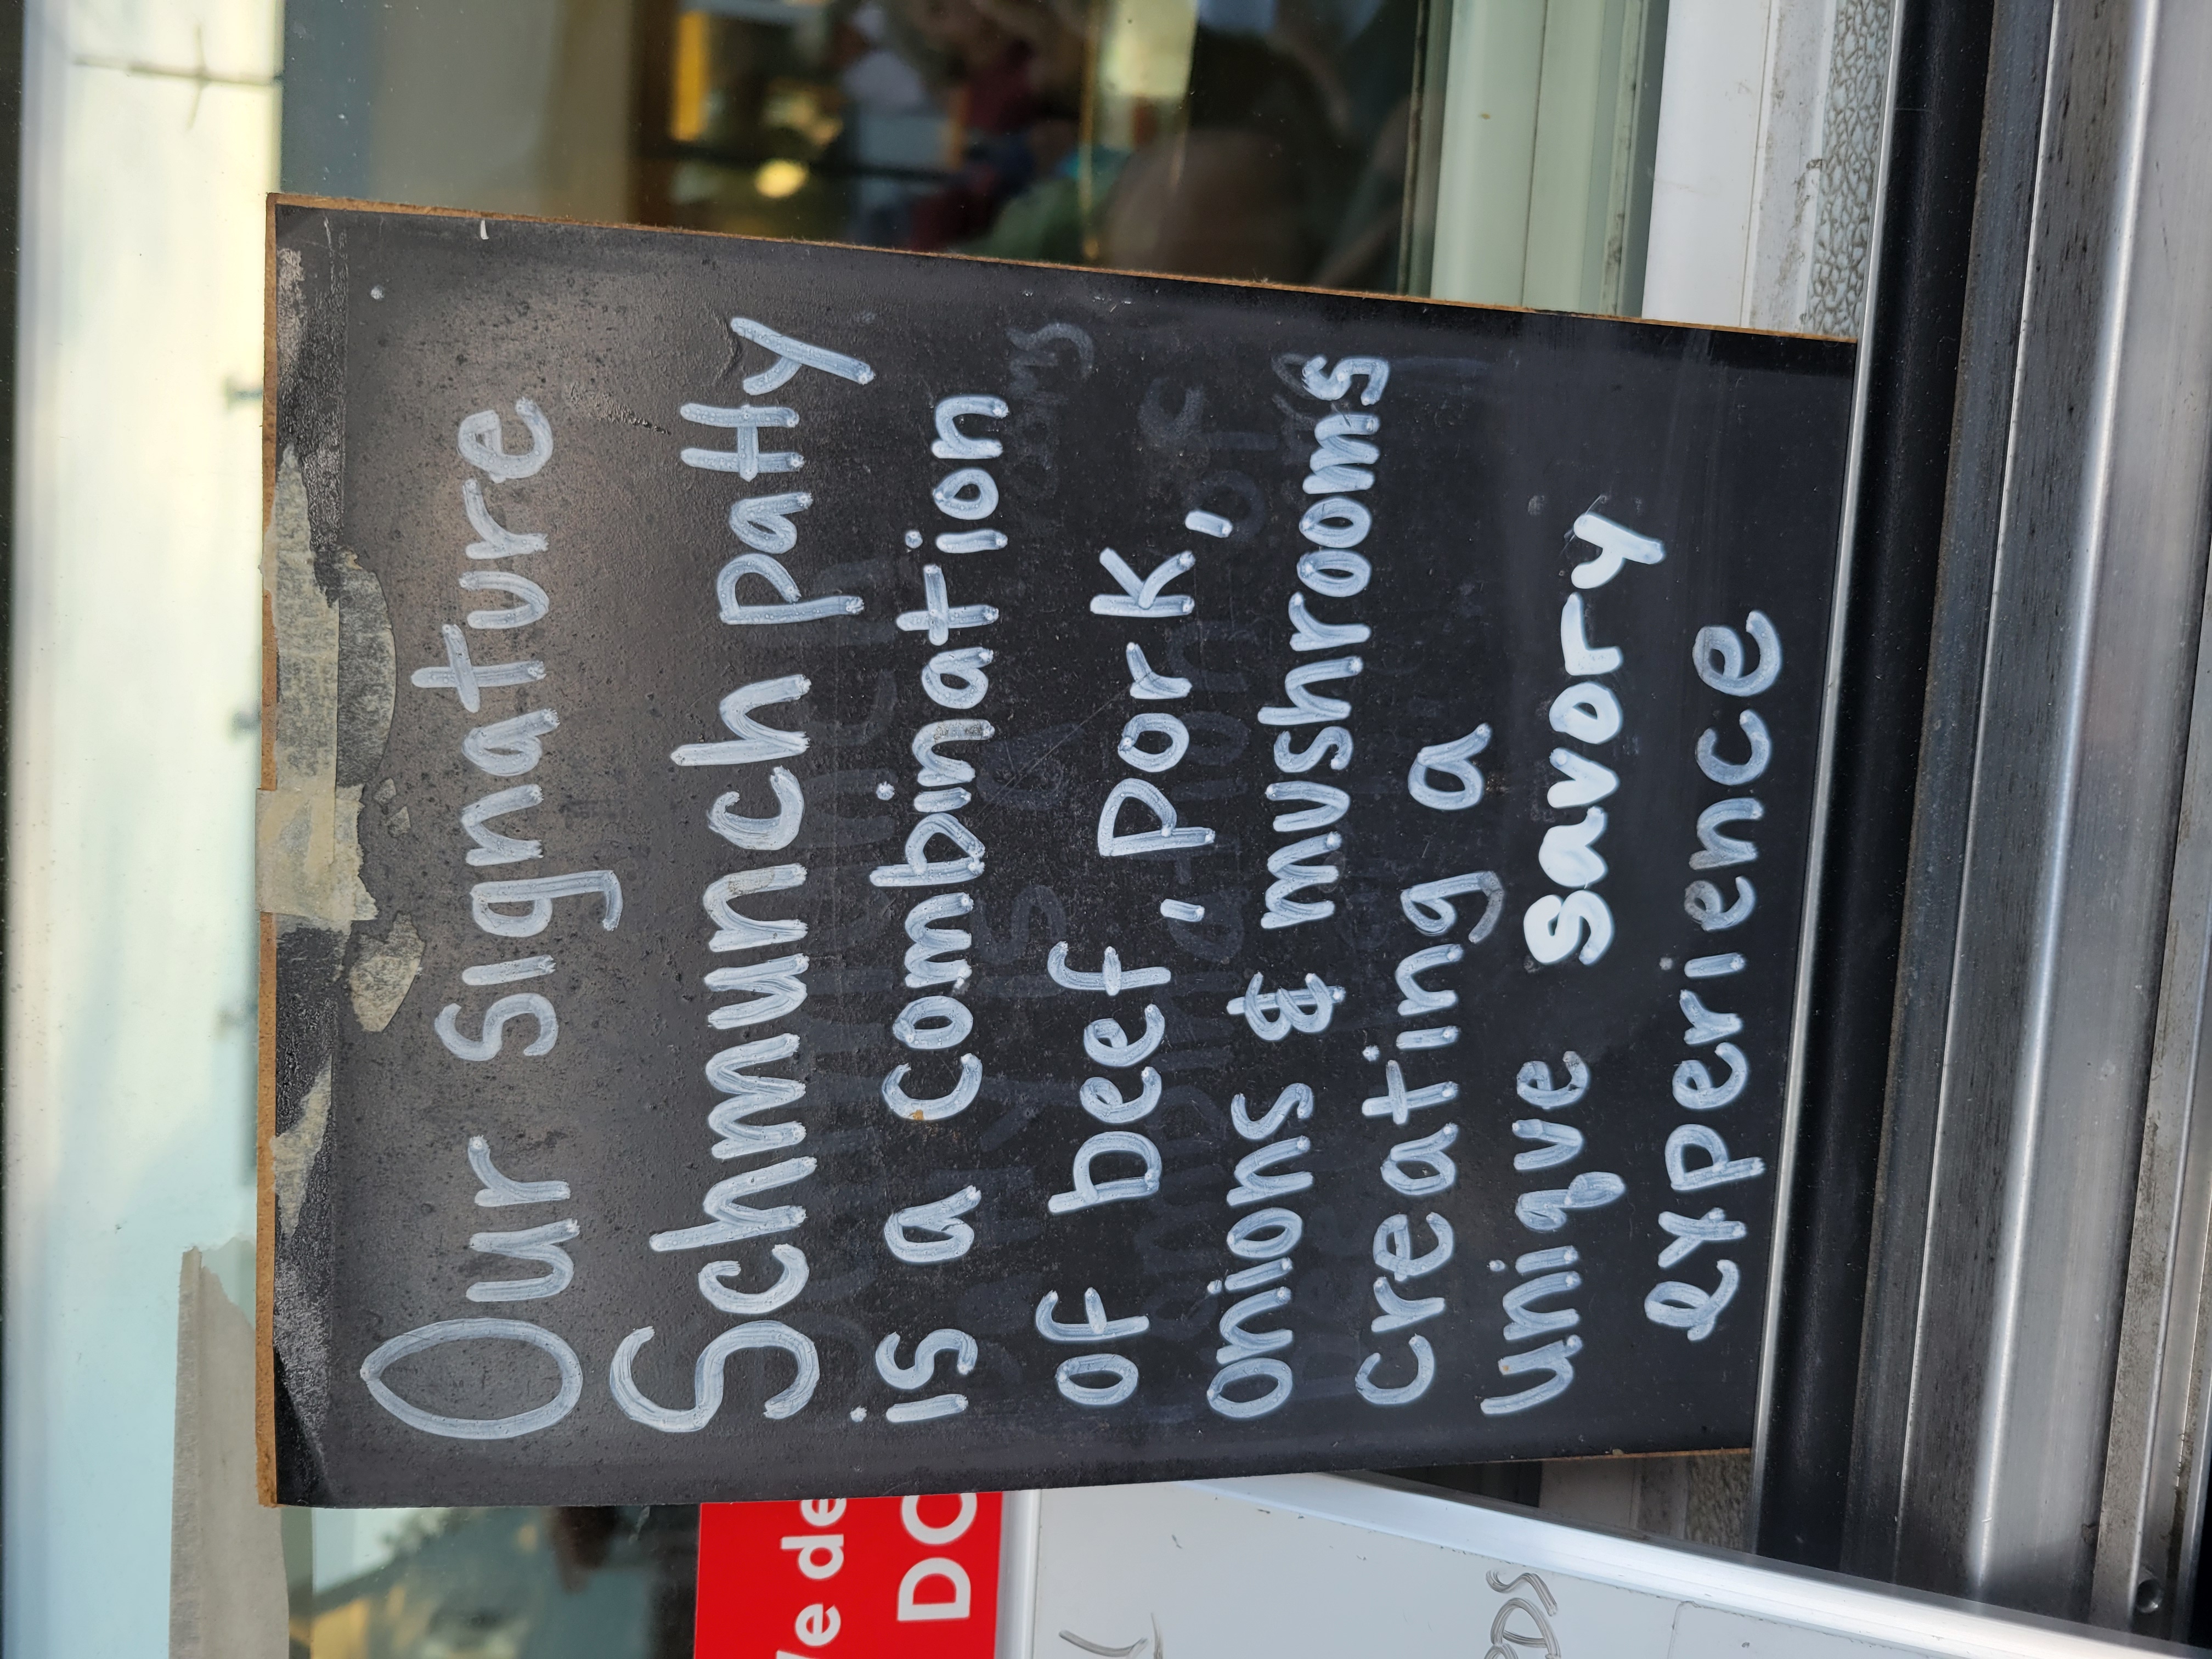 Our signature
Schmunch patty
is a combination
of beef, pork,
onions & mushrooms
creating a
unique savory
experience
We de
DO